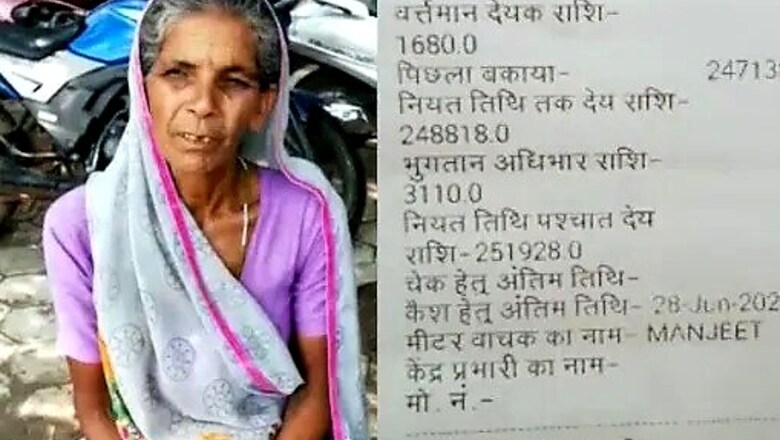 वर्त्तमान देयक राशि-
1680.0
पिछला बकाया- 24713
नियत तिथि तक देय राशि-
248818.0
भुगतान अधिभार राशि-
3110.0
नियत तिथि पश्चात देय
राशि-251928.0
चेक हेतू अंतिम तिथि-
कैश हेतू अंतिम तिथि- 28-Jun-202
मीटर वाचक का नाम- MANJEET
केंद्र प्रभारी का नाम-
मो. नं.-